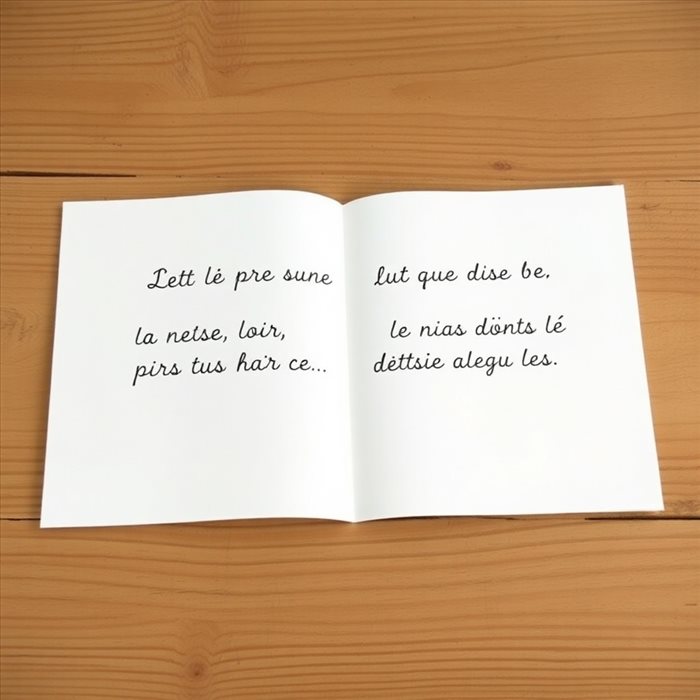 Lett lė pre sune
la netse, loir,
pirs tus ha'r ce...
lut que dise be.
le nias dönts lé
dėttsie alegu les.